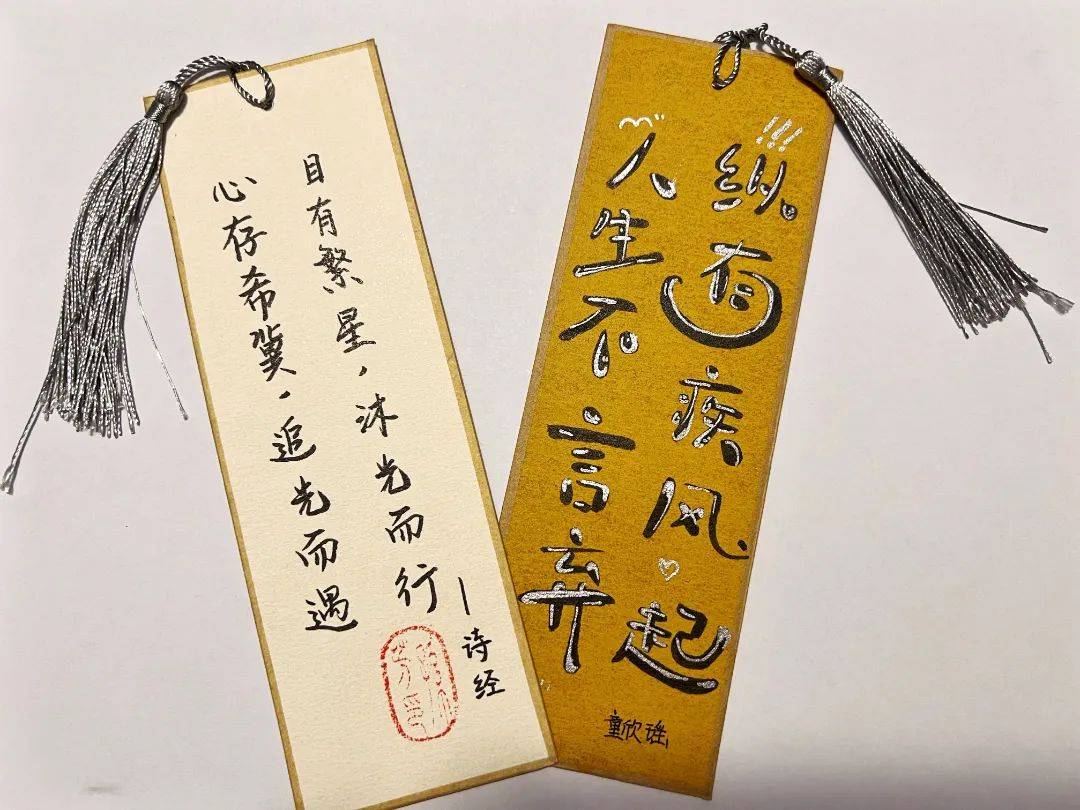 心存希冀，追光而遇
目有繁星，沐光而行
—诗经
纵有疾风起
人生不言弃
童欣瑶